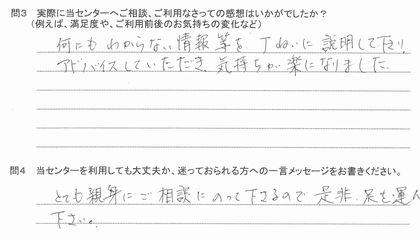 問3 実際に当センターへご相談、ご利用なさっての感想はいかがでしたか？
(例えば、満足度や、ご利用前後のお気持ちの変化など)
何にもわからない情報等を、丁ねいに説明して下さり
アドバイスしていただき、気持ちが楽になりました。
問4 当センターを利用しても大丈夫か、迷っておられる方への一言メッセージをお書きください。
とても親身にご相談にのって下さるので是非、足を運ん
下さい。